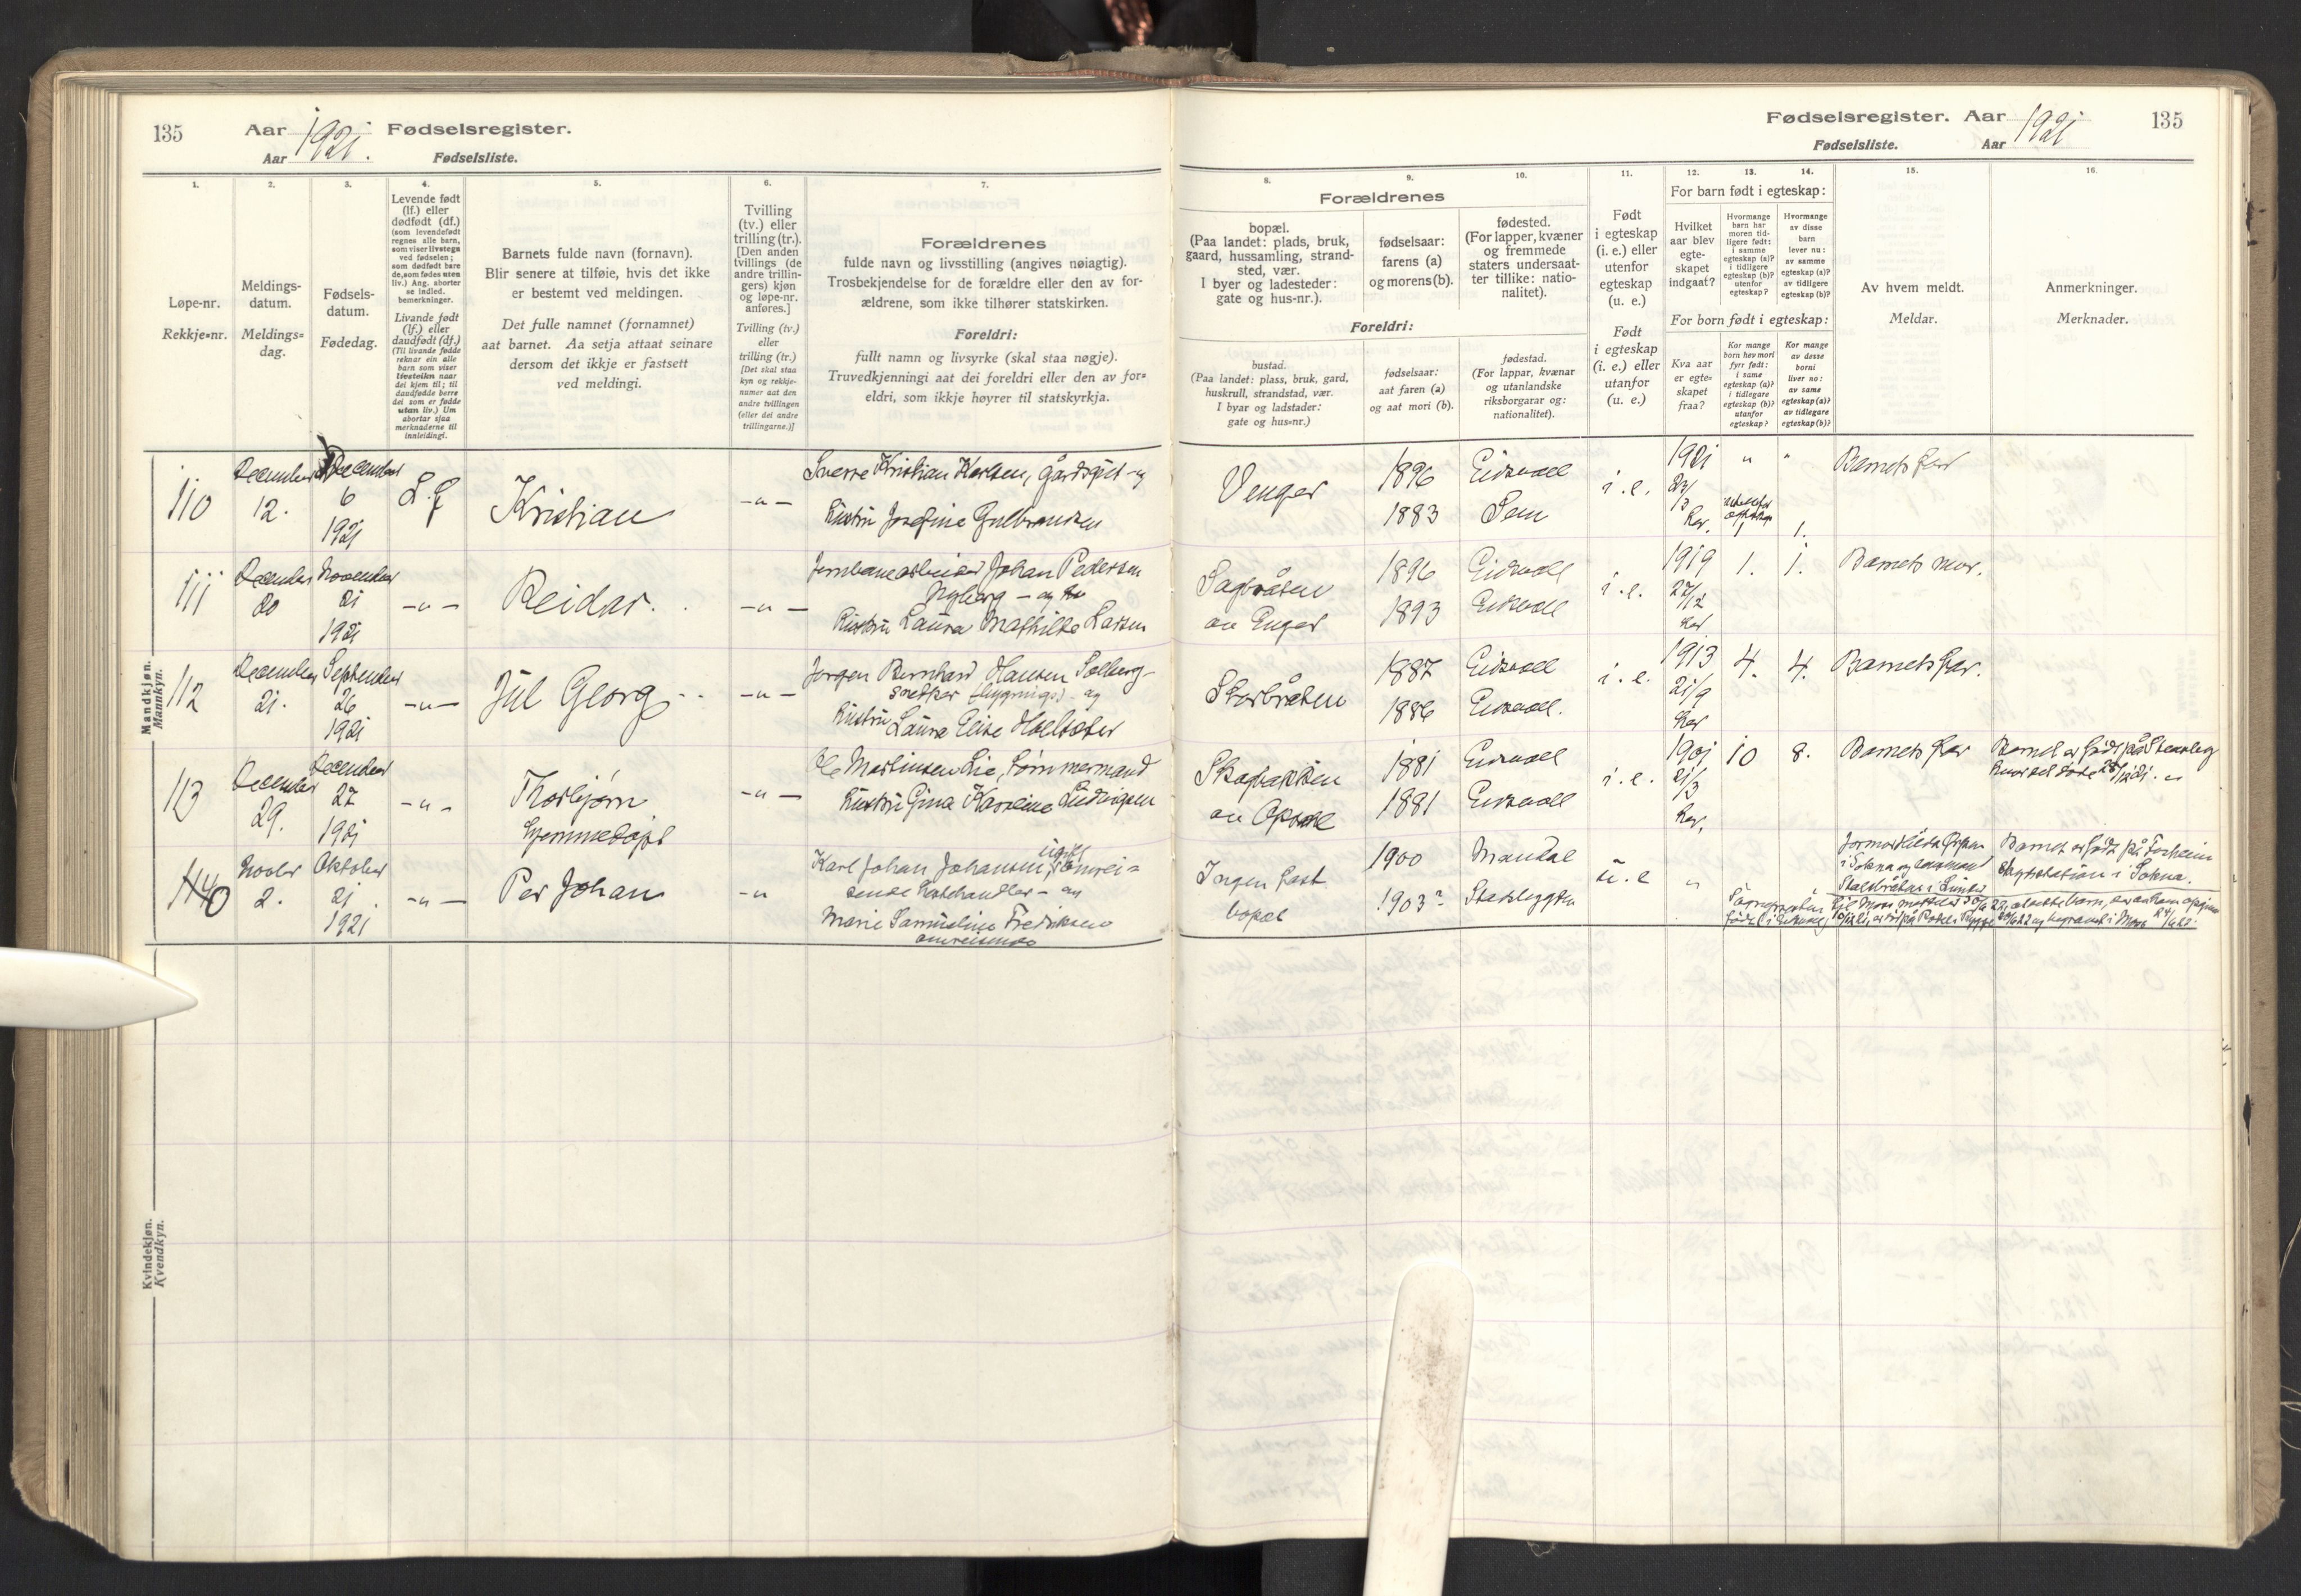 135
Aar 1921. Fødselsregister.
Aar
Fødselsliste.
1.
2.
3.
4.
5.
6.
7.
Løpe-nr.
Rekkje=nr.
Meldings-
datum.
Meldings=
dag.
Fødsels-
datum.
Fødedag.
Levende født
(lf.) eller
dødfødt (df.)
(som levendefødt
regnes alle barn,
som viser livstegn
ved fødselen;
som dødfødt bare
de, som fødes uten
liv.) Ang. aborter
se indled.
bemerkninger.
Livande født
(lf.) eller
daudfødt (df.)
(Til livande fødde
reknar ein alle
barn som viser
livsteikn naar
dei kjem til; til
daudfødde berre
dei som er fødde
utan liv.) Um
abortar sjaa
merknaderne til
innleidingi.
Barnets fulde navn (fornavn).
Blir senere at tilføie, hvis det ikke
er bestemt ved meldingen.
Det fulle namnet (fornamnet)
aat barnet. Aa setja attaat seinare
dersom det ikkje er fastsett
ved meldingi.
Tvilling
(tv.) eller
trilling (tr.).
[Den anden
tvillings (de
andre trillin-
gers) kjøn
og løpe-nr.
anføres.]
Tvilling (tv.)
eller
trilling (tr.)
[Det skal staa
kyn og rekkje-
numer aat den
andre tvillingen
(eller dei andre
trillingarne.)]
Forældrenes
fulde navn og livsstilling (angives nøiagtig).
Trosbekjendelse for de forældre eller den av for-
ældrene, som ikke tilhører statskirken.
Foreldri:
fullt namn og livsyrke (skal staa nøgje).
Truvedkjenningi aat dei foreldri eller den av for=
eldri, som ikkje høyrer til statskyrkja.
Mandkjøn.
Mannkyn.
110
December
12.
December
6
1921
L.f
Kristian
-"-
Sverre Kristian Karlsen, gårdsgut - og
Kustru Josefine Gulbrandsen
111
December
20
November
21
1921
-"-
Reidar.
-"-
Jernbanearbeider Johan Pedersen
Nyberg - og
Kustru Laura Mathilde Larsen
112
December
21.
September
26
1921
-"-
Jul Georg
-"-
Jørgen Bernhard Hansen Solberg -
snekker (bygnings) - og
Kustru Laura Elise Holtsæter
113
December
29.
December
27
1921
-"-
Thorbjørn
hjemmedøpt
-"-
Ole Martinsen Lie, tømmermand
Kustru Gina Karoline Ludvigsen
Novbr
2.
Oktober
21.
1921
-"-
Per Johan
-"
Karl Johan Johansen, ugift omrei=
sende - og
Marie Samueline Fredriksen
omreisende
Kvindekjøn.
Kvendkyn.
Fødselsregister. Aar 1921
135
Fødselsliste.
Aar
8.
9.
10.
11.
12.
13.
14.
15.
16.
Forældrenes
bopæl.
(Paa landet: plads, bruk,
gaard, hussamling, strand-
sted, vær.
I byer og ladesteder:
gate og hus-nr.).
fødselsaar:
farens (a)
og morens (b).
fødested.
(For lapper, kvæner
og fremmede
staters undersaat-
ter tillike: natio-
nalitet).
Foreldri:
bustad.
(Paa landet: plass, bruk, gard,
huskrull, strandstad, vær.
I byar og ladstader:
gate og hus=nr.)
fødselsaar:
aat faren (a)
og aat mori (b).
fødestad.
(For lappar, kvænar
og utanlandske
riksborgarar og:
nationalitet).
Født
i egteskap
(i. e.) eller
utenfor
egteskap
(u. e.)
Født
i egteskap
(i. e.) eller
utanfor
egteskap
(u. e.)
For barn født i egteskap:
Hvilket
aar blev
egte-
skapet
indgaat?
Hvormange
barn har
moren tid-
ligere født:
i samme
egteskap (a)?
i tidligere
egteskap (b)?
utenfor
egteskap?
Hvormange
av disse
barn
lever nu:
av samme
egteskap (a)?
av tidligere
egteskap (b)?
For born født i egteskap:
Kva aar
er egte=
skapet
fraa?
Kor mange
born hev mori
fyrr født:
i same
egteskap (a)?
i tidlegare
egteskap (b)?
utanfor
egteskap?
Kor mange
av desse
borni
liver no:
av same
egteskap (a)?
av tidlegare
egteskap (b)?
Av hvem meldt.
Meldar.
Anmerkninger.
Merknader.
Venger
1896
1883
Eidsvoll
Sem
i. e.
1921
23/3
her.
"
1
"
1.
Barnets far
Sagbråten
av Enger
1896
1893
Eidsvoll
Eidsvoll
i. e.
1919
27/12
her
1.
1.
Barnets mor.
Storbråten
1887
1886
Eidsvoll
Eidsvoll.
i. e.
1913
21/9
her
4.
4.
Barnets far.
Skogbakken
av Opsal
1881
1881
Eidsvoll
Eidsvoll
i. e.
1901
21/3
her.
10
8.
Barnets far
Barnet er født på Stensby
hvor det døde 28/12 21.
Ingen fast
bopæl
1900
1903?
Mandal
u. e
"
i Sokna og
Barnet er født på
i Sokna.